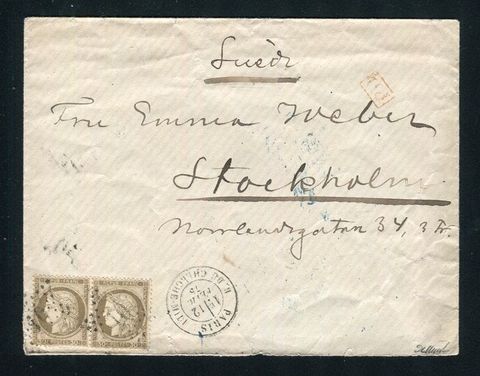 Suède
P.D.
Fru Emma Weber
Stockholm
Norrlandsgatan 34, 3 Tr.
REPUB. FRANC. REPUB. FRANC.
30 POSTES 30 30 POSTES 30
PARIS
R. DU CHERCHE-MIDI
12
FEVR
75